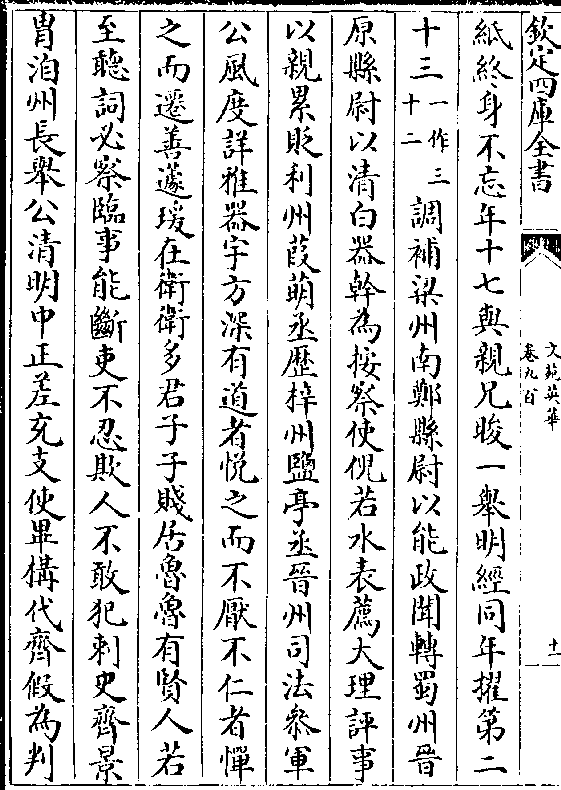 欽定四庫全書
文苑英華
卷九百
十一
紙終身不忘年十七與親兄晙一舉明經同年擢第二
十三一作三十二調補梁州南鄭縣尉以能政聞轉蜀州晉
原縣尉以清白器幹為按察使倪若水表薦大理評事
以親累貶利州葭萌丞歴梓州鹽亭丞晉州司法叅軍
公風度詳雅器宇方深有道者悦之而不厭不仁者憚
之而遷善蘧瑗在衛衛多君子子賤居魯魯有賢人若
至聽詞必察臨事能斷吏不忍欺人不敢犯刺史齊景
胄洎州長舉公清明中正差充支使畢構代齊假為判